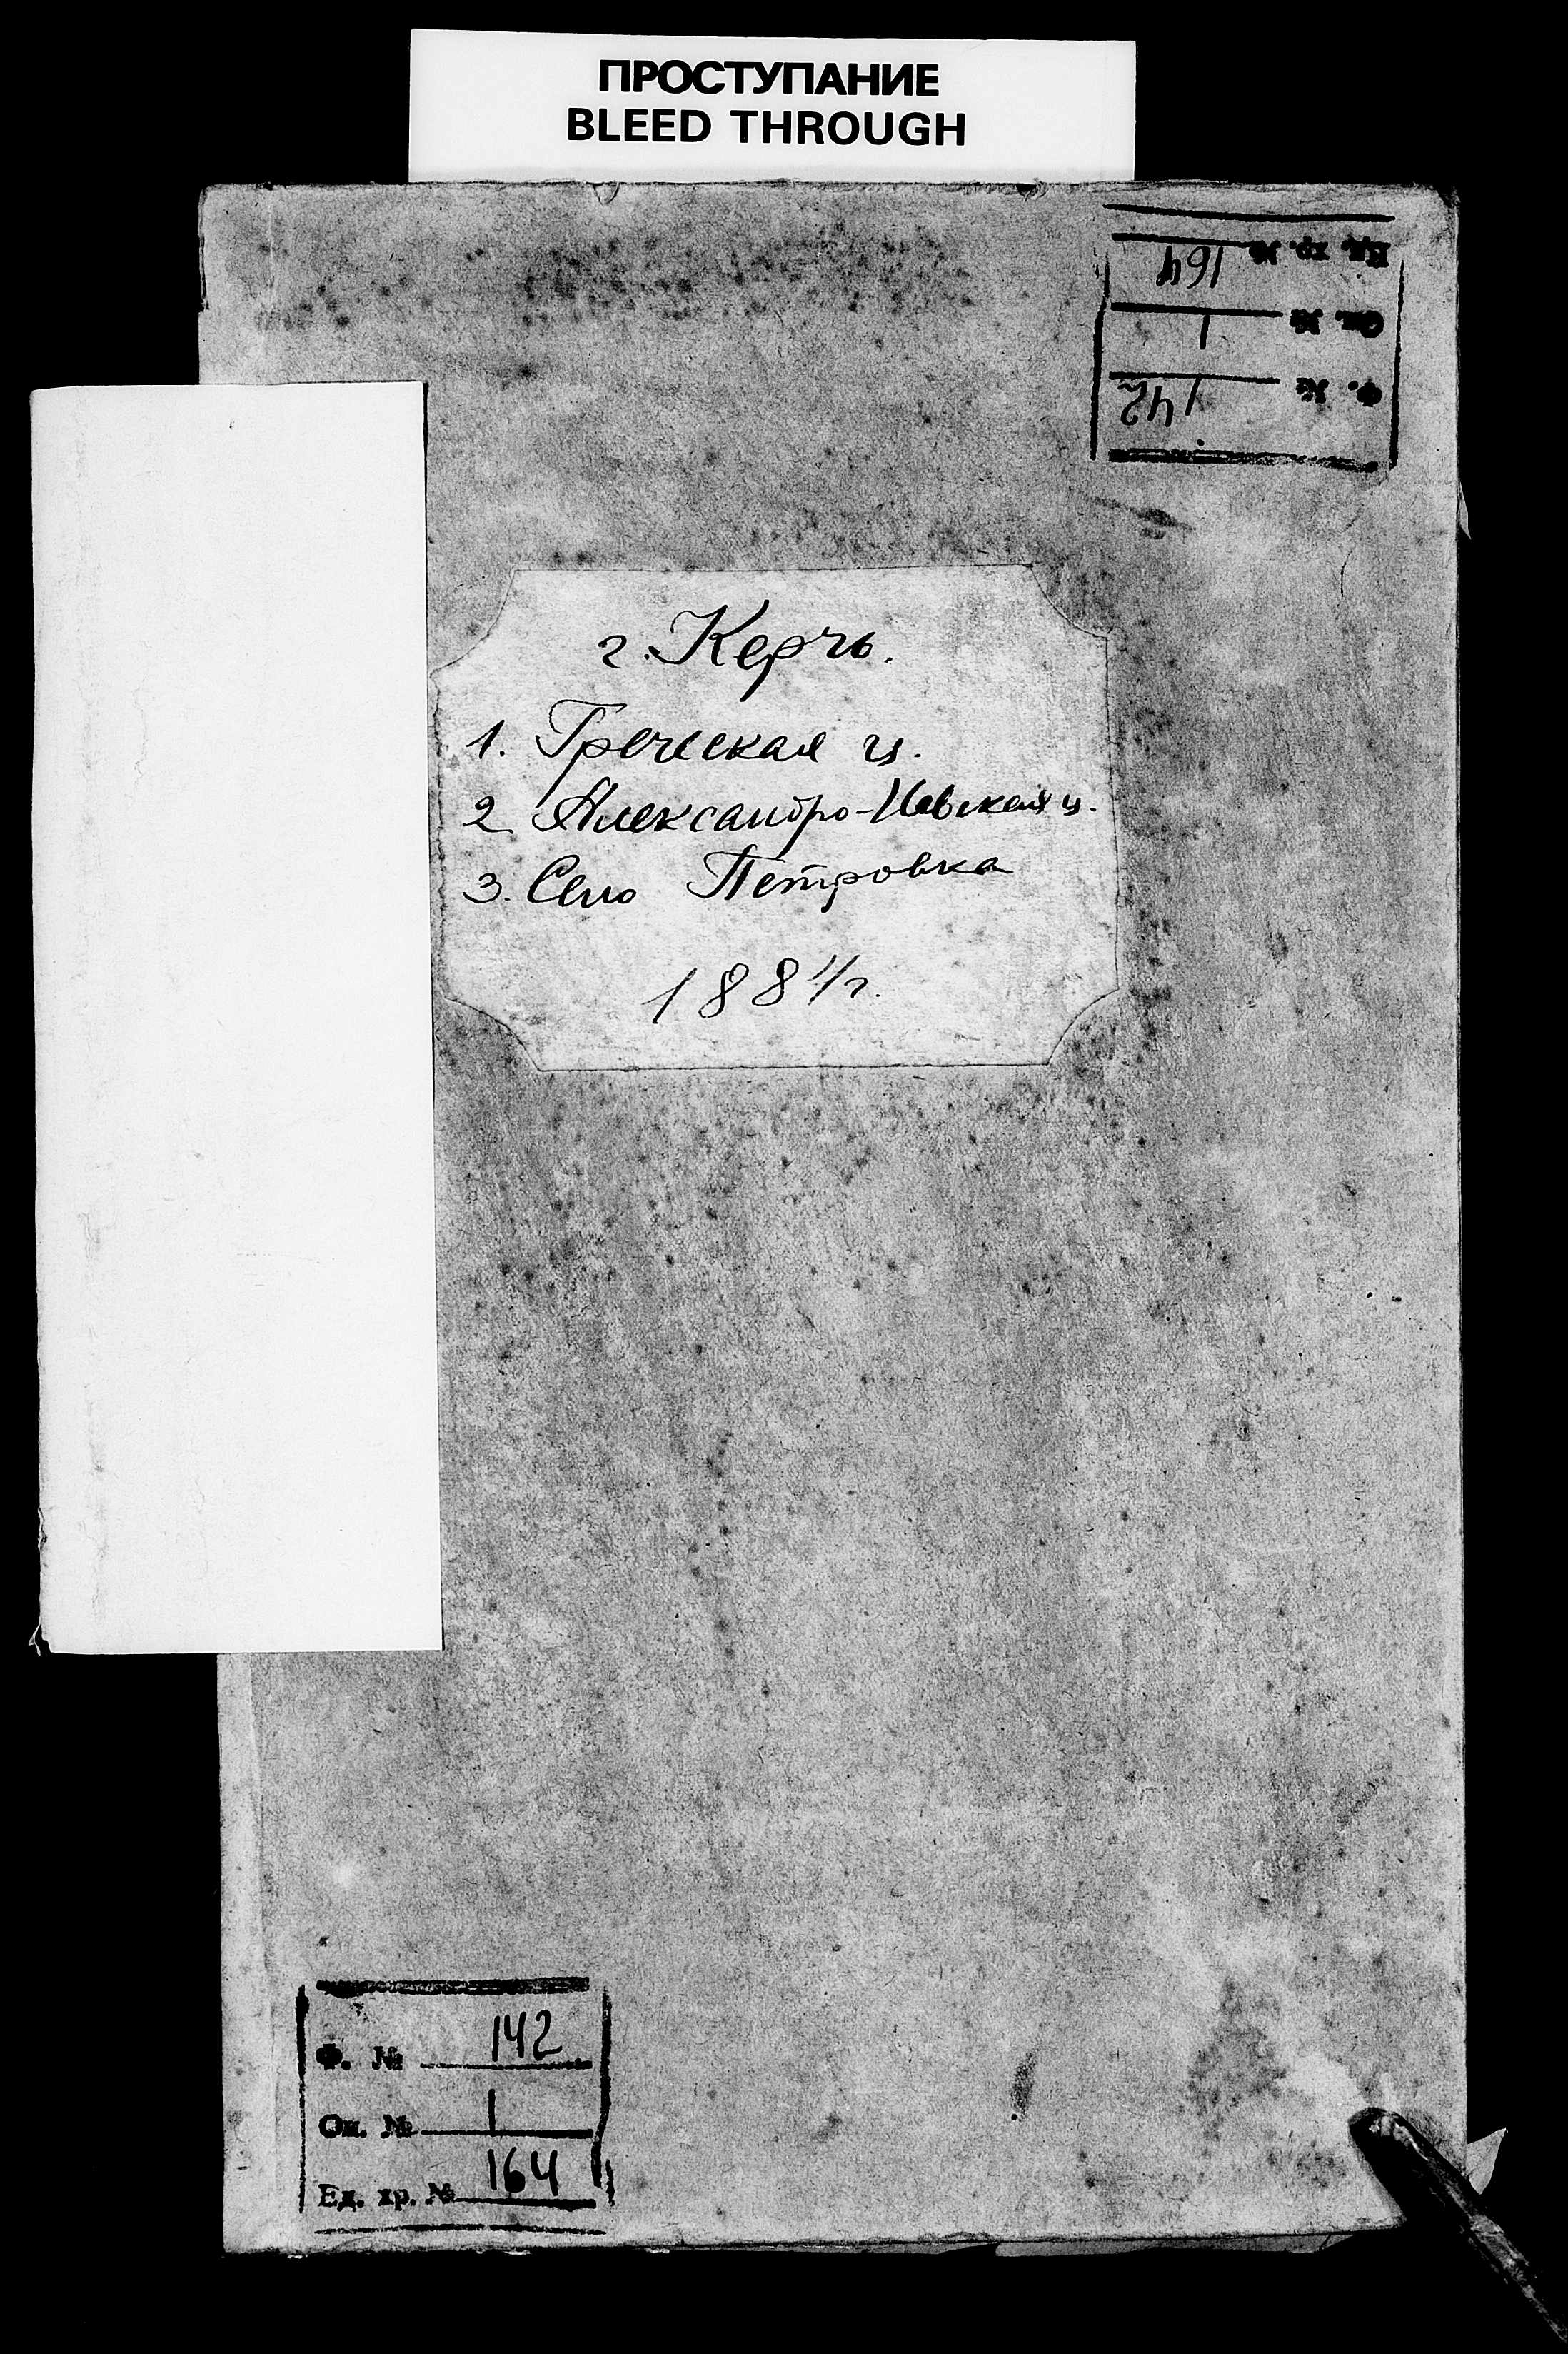 ПРОСТУПАНИЕ
BLEED THROUGH
Ед. хр. № 164
Оп. № 1
Ф. № 142
г. Керчь.
1. Греческая ц.
2 Александро-Невская ц.
3. Село Петровка
1881/г.
Ф. № 142
Оп. № 1
Ед. хр. № 164